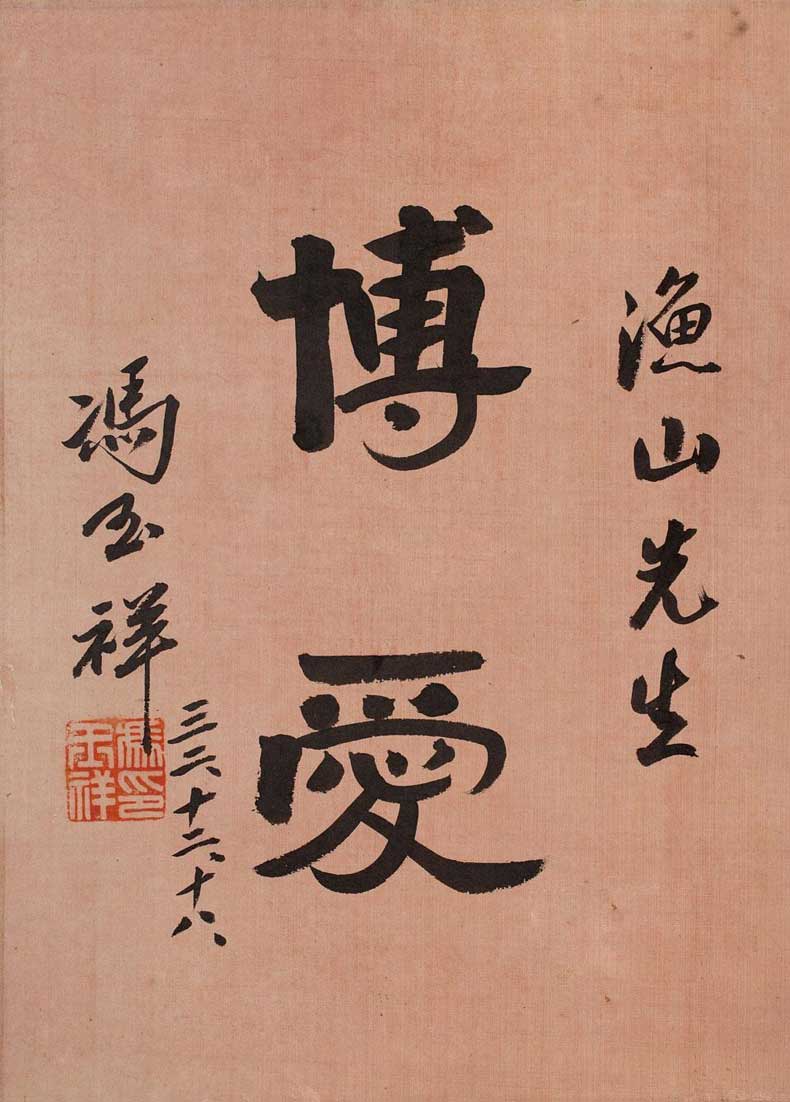 漁山先生
博愛
馮玉祥
三二、十二、十八
馮印
玉祥